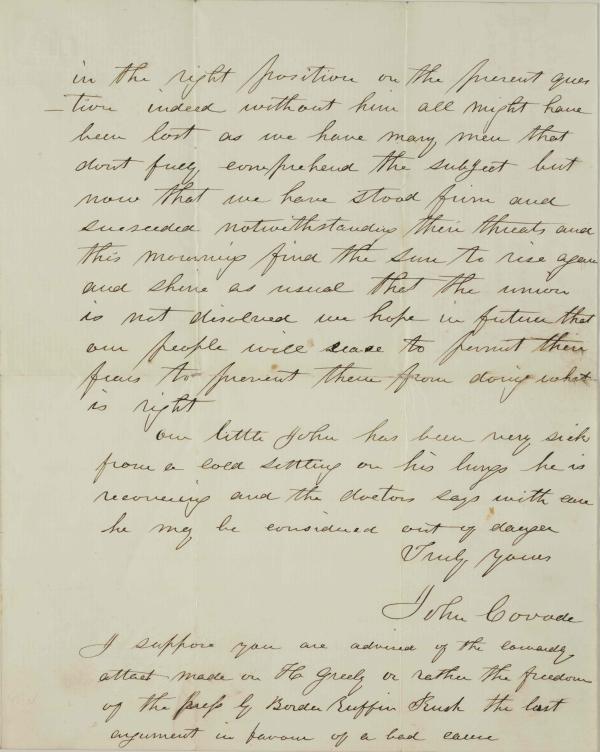 in the right position on the present ques
– tion indeed without him all might have
been lost as we have many men that
dont fully comprehend the subject but
now that we have stood firm and
succeeded notwithstanding their threats and
this mourning find the sun to rise again
and shine as usual that the union
is not disolved we hope in future that
our people will cease to permit their
fears to prevent them from doing what
is right
our little John has been very sick
from a cold setting on his lungs he is
recovering and the doctors says with care
he may be considered out of danger
Truly yours
John Covode
I suppose you are advised of the cowardly
attact made on H Greely or rather the freedom
of the press by Border Ruffin Rush the last
argument in favour of a bad cause